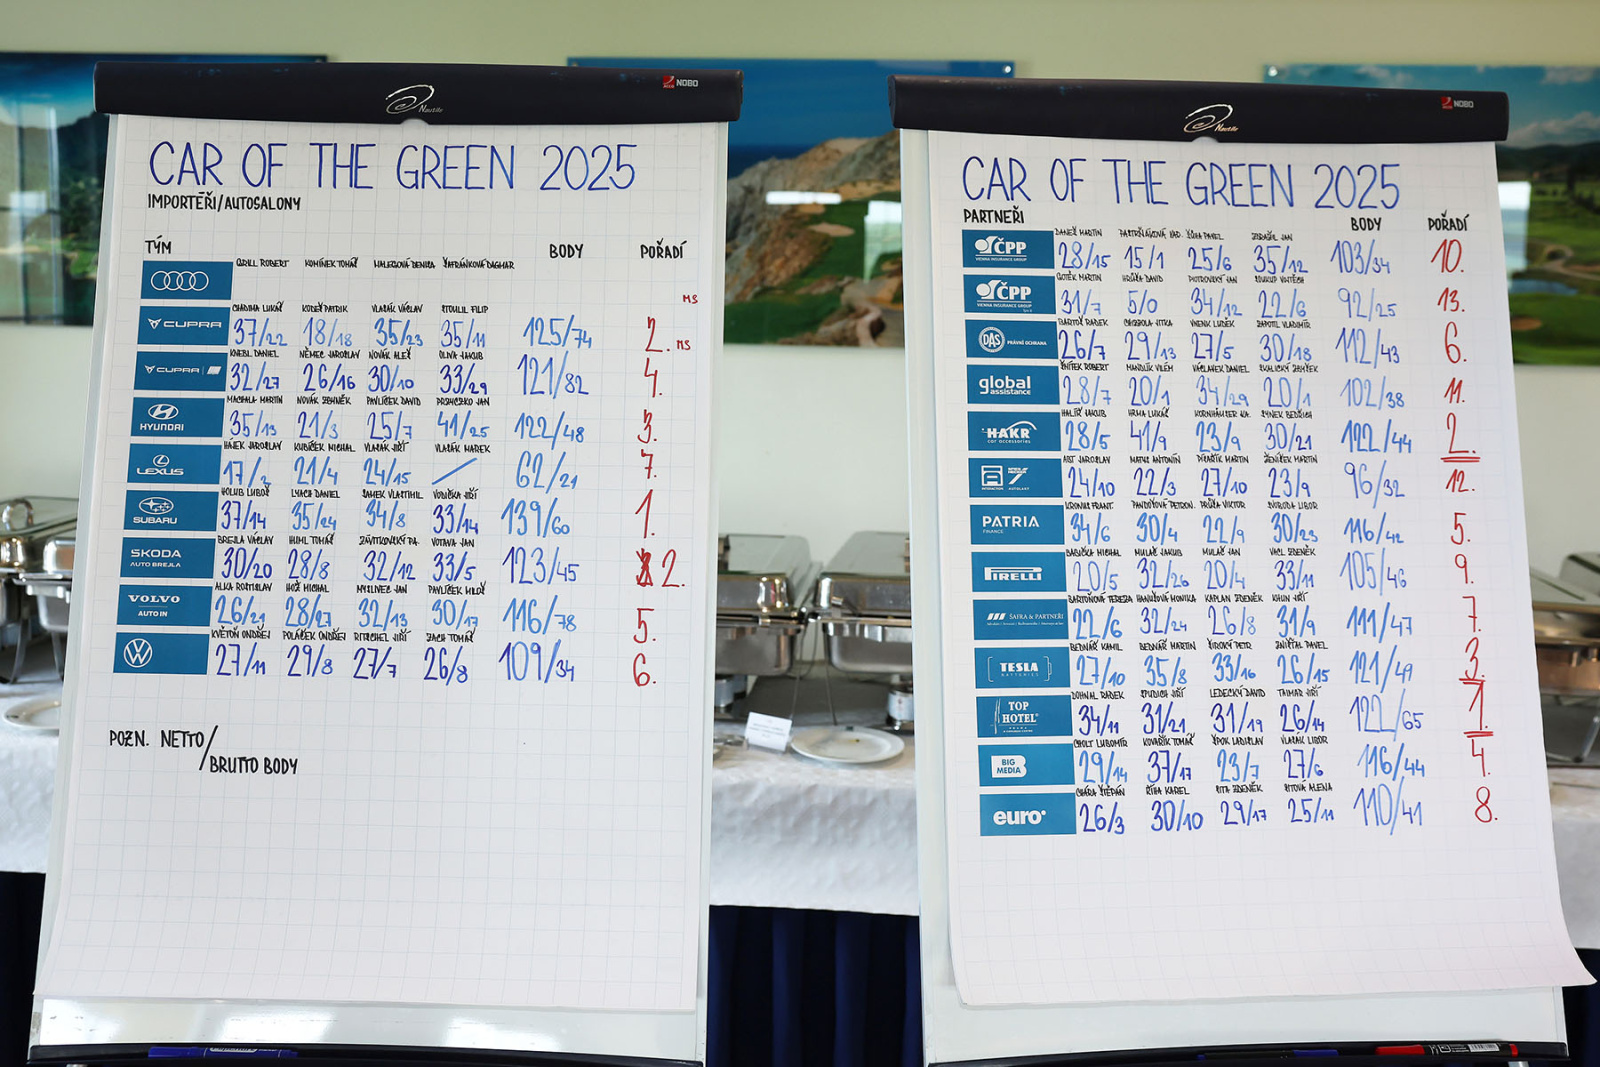 NOBO
Nautilo
CAR OF THE GREEN 2025
IMPORTÉŘI/AUTOSALONY
TÝM BODY POŘADÍ
GRILL ROBERT KOMÍNEK TOMÁŠ DENISA ŠAFRÁNKOVÁ DAGMAR
MS
CHADIMA LUKÁŠ PATRIK VLASÁK VÁCLAV PITOULIL FILIP
CUPRA 37/22 18/18 35/23 35/11 125/74 2.
MS
KNEBL DANIEL NĚMEC JAROSLAV NOVÁK ALEŠ OLIVA JAKUB
CUPRA 32/27 26/16 30/10 33/29 121/82 4.
MACHALA MARTIN NOVÁK ZDENĚK PAVLÍČEK DAVID JAN
HYUNDAI 35/13 21/3 25/7 41/25 122/48 3.
HÁJEK JAROSLAV KUBÍČEK MICHAL VLASÁK JIŘÍ VLASÁK MAREK
LEXUS 17/2 21/4 24/15 / 62/21 7.
HOLUB LUBOŠ LYACH DANIEL SAMEK VLASTIMIL VODIČKA JIŘÍ
SUBARU 37/14 35/24 34/8 33/14 139/60 1.
BREJLA VÁCLAV HUML TOMÁŠ ZÁVITKOVSKÝ PA. VOTAVA JAN
ŠKODA AUTO BREJLA 30/20 28/8 32/12 33/5 123/45 2.
ALKA ROSTISLAV HOŽ MICHAL MYSLIVEC JAN PAVLÍČEK MILOŠ
VOLVO AUTO IN 26/21 28/27 32/13 30/17 116/78 5.
KVĚTOŇ ONDŘEJ POLÁČEK ONDŘEJ RITSCHEL JIŘÍ ZACH TOMÁŠ
27/11 29/8 27/7 26/8 109/34 6.
POZN. NETTO/
BRUTTO BODY
NOBO
Nautilo
CAR OF THE GREEN 2025
PARTNEŘI BODY POŘADÍ
DANEŠ MARTIN PAVEL JAN
ČPP VIENNA INSURANCE GROUP 28/15 15/1 25/6 35/12 103/34 10.
MARTIN HRŮŠA DAVID PIOTROVSKÝ JAN SOUKUP VOJTĚCH
ČPP VIENNA INSURANCE GROUP 31/7 5/0 34/12 22/6 92/25 13.
BARTOŠ RADEK JITKA VNENK LUDĚK ZAPOTIL VLADIMÍR
DAS PRÁVNÍ OCHRANA 26/7 29/13 27/5 30/18 112/43 6.
ROBERT MANDLÍK VILÉM VÁCLAVEK DANIEL SKALICKÝ ZBYŠEK
global assistance 28/7 20/1 34/29 20/1 102/38 11.
HALÍŘ JAKUB HRMA LUKÁŠ BEDŘICH
HAKR car accessories 28/5 41/9 23/9 30/21 122/44 2.
ABT JAROSLAV MATUS ANTONÍN PISAŘÍK MARTIN ŽENÍŠEK MARTIN
24/10 22/3 27/10 23/9 96/32 12.
FRANT. VIKTOR SVOBODA LIBOR
PATRIA FINANCE 34/6 30/4 22/9 30/23 116/42 5.
BABIČKA MICHAL MULAČ JAKUB MULAČ JAN VACL ZDENĚK
PIRELLI 20/5 32/26 20/4 33/11 105/46 9.
BARTOŇOVÁ TEREZA HANUŠOVÁ MONIKA KAPLAN ZDENĚK KUHN JIŘÍ
ŠAFRA & PARTNEŘI 22/6 32/24 26/8 31/9 111/47 7.
BEDNÁŘ KAMIL BEDNÁŘ MARTIN ŠIROKÝ PETR ZNIŠŤAL PAVEL
TESLA BATTERIES 27/10 35/8 33/16 26/15 121/49 3.
DOHNAL RADEK JIŘÍ LEDECKÝ DAVID TAIMAR JIŘÍ
TOP HOTEL PRAHA 34/11 31/21 31/19 26/14 122/65 1.
CHOLT LUBOMÍR KOVAŘÍK TOMÁŠ ŠPOK LADISLAV VLASÁK LIBOR
BIG MEDIA 29/14 37/17 23/7 27/6 116/44 4.
CHÁRA ŠTĚPÁN ŘÍHA KAREL SITA ZDENĚK SITOVÁ ALENA
euro 26/3 30/10 29/17 25/11 110/41 8.